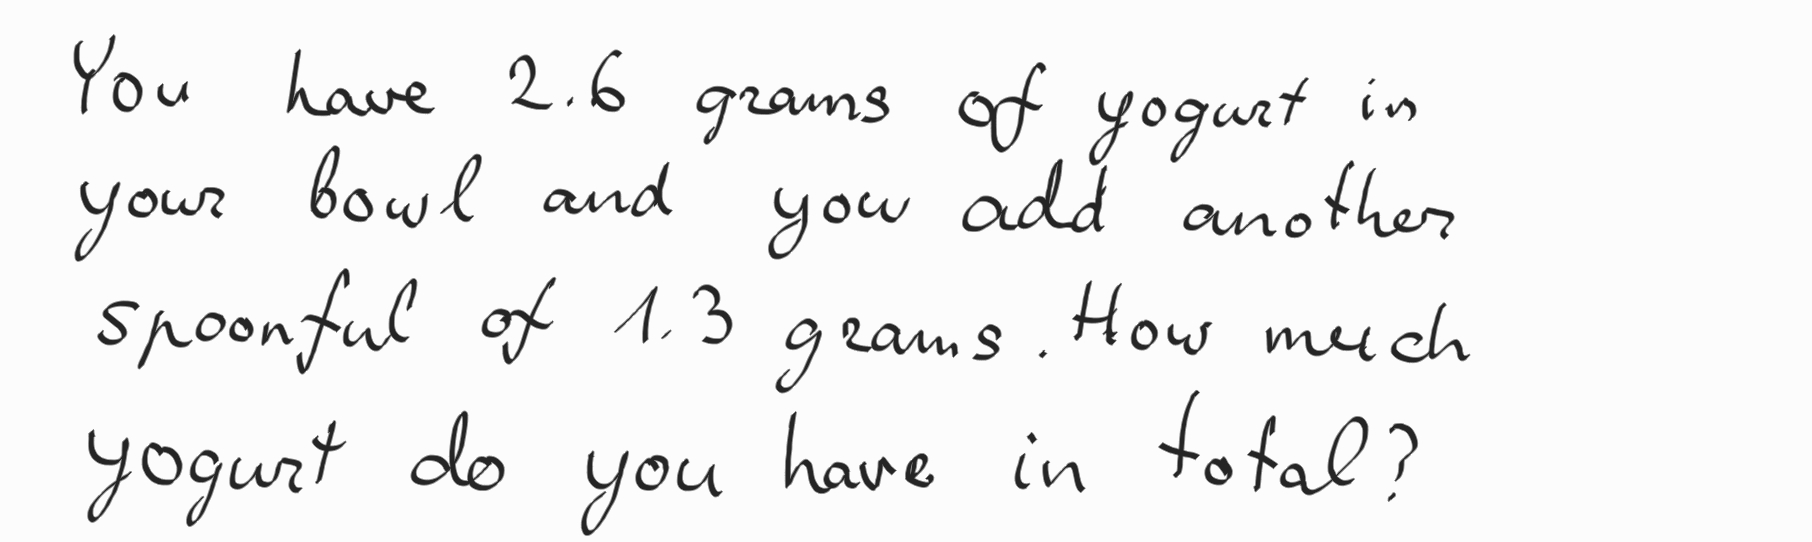 You have 2.6 grams of yogurt in
your bowl and you add another
spoonful of 1.3 grams. How much
yogurt do you have in total?